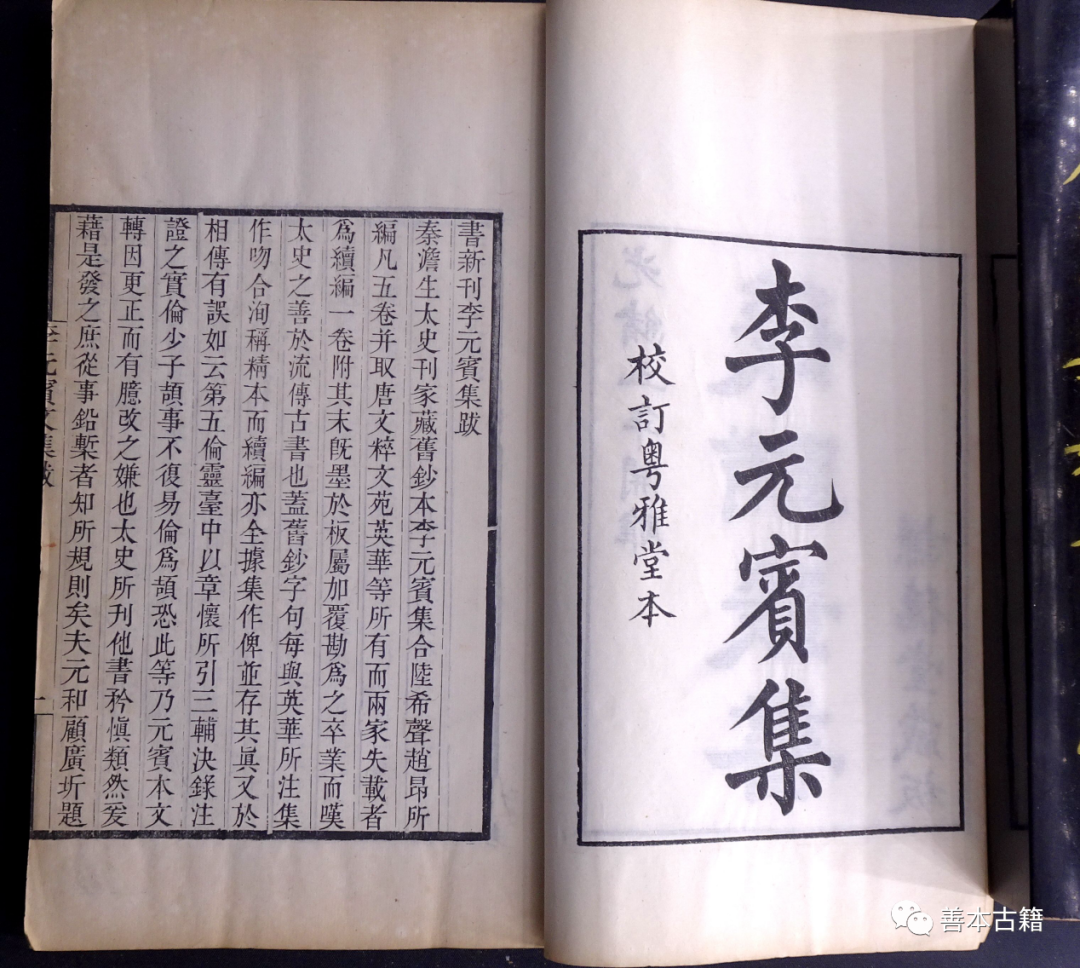 李元賓集
校訂粵雅堂本
書新刊李元賓集跋
秦澹生太史刊家藏舊鈔本李元賓集合陸希聲趙昂所
編凡五卷并取唐文粹文苑英華等所有而兩家失載者
爲續編一卷附其末旣墨於板屬加覆勘爲之卒業而嘆
太史之善於流傳古書也蓋舊鈔字句每與英華所注集
作吻合洵稱精本而續編亦全據集作俾並存其眞又於
相傳有誤如云第五倫靈臺中以章懷所引三輔決錄注
證之實倫少子頡事不復易倫爲頡恐此等乃元賓本文
轉因更正而有臆改之嫌也太史所刊他書矜愼類然爰
藉是發之庶從事鉛槧者知所規則矣夫元和顧廣圻題
李元賓文集跋
一
善本古籍